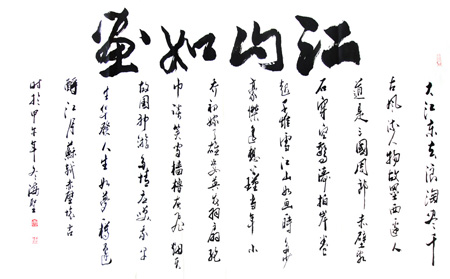 江山如画
大江东去浪淘尽千
古风流人物故垒西边人
道是三国周郎赤壁乱
石穿空惊涛拍岸卷
起千堆雪江山如画一时多少
豪傑遥想公瑾当年小
乔初嫁了雄姿英发羽扇纶
巾谈笑间樯橹灰飞烟灭
故国神游多情应笑我早
生华发人生如梦一樽还
酹江月苏轼赤壁怀古
时於甲午年冬海